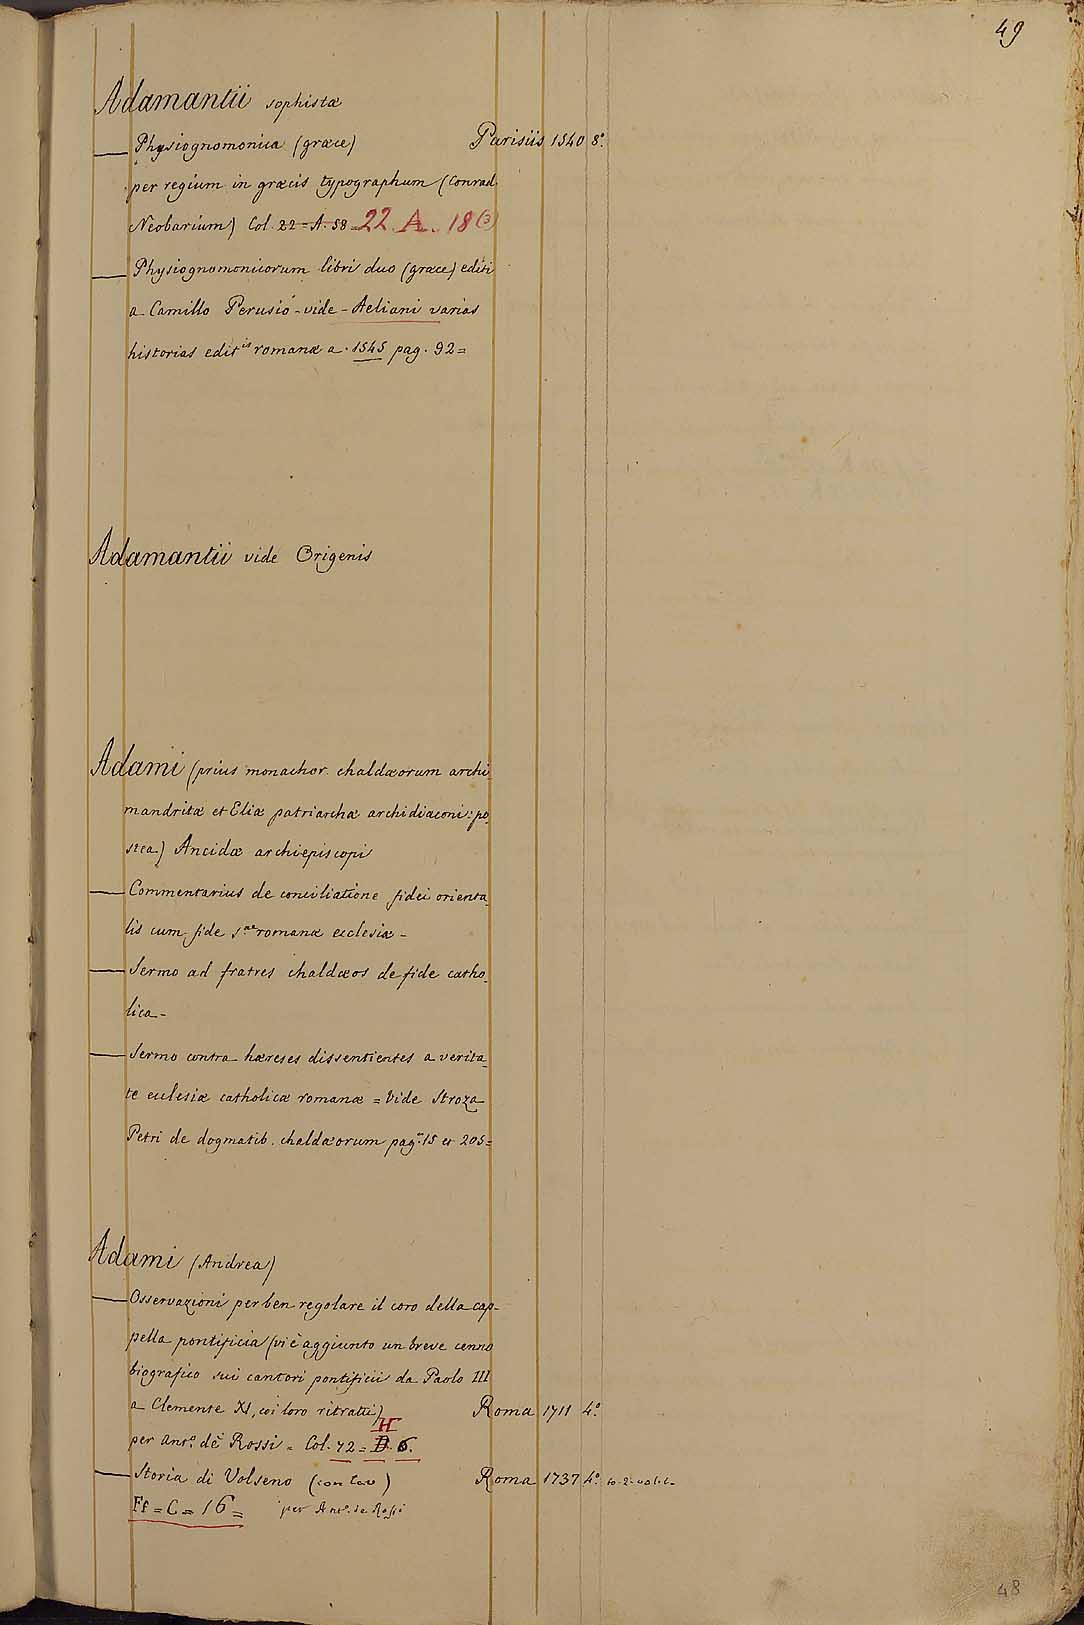 49
Adamantii sophistæ
— Physiognomonica (græce) Parisiis 1540 8.º
per regium in græcis typographum (Conrad.
Neobarium) Col. 22 = A. 58 = 22. A. 18 (3)
— Physiognomonicorum libri duo (græce) editi
a Camillo Perusio - vide - Aeliani varias
historias edit.is romanæ a. 1545 pag. 92 =
Adamantii vide Origenis
Adami (prius monachor. chaldæorum archi
mandritæ et Eliæ patriarchæ archidiaconi: po
stea) Ancidæ archiepiscopi
— Commentarius de conciliatione fidei orienta
lis cum fide s.ae romanæ ecclesiæ -
— Sermo ad fratres chaldæos de fide catho
lica -
— Sermo contra hæreses dissentientes a verita
te ecclesiæ catholicæ romanæ = Vide Stroza
Petri de dogmatib. chaldæorum pag. 15 et 205 =
Adami (Andrea)
— Osservazioni per ben regolare il coro della cap-
pella pontificia (vi è aggiunto un breve cenno
biografico sui cantori pontificii da Paolo III
a Clemente XI, coi loro ritratti) Roma 1711 4.º
H
per Ant.º de Rossi = Col. 72 = D. 6.
— Storia di Volseno (con tav) Roma 1737 4.º to. 2. vol. 1.
Ff = C = 16 = per Ant.º de Rossi
48